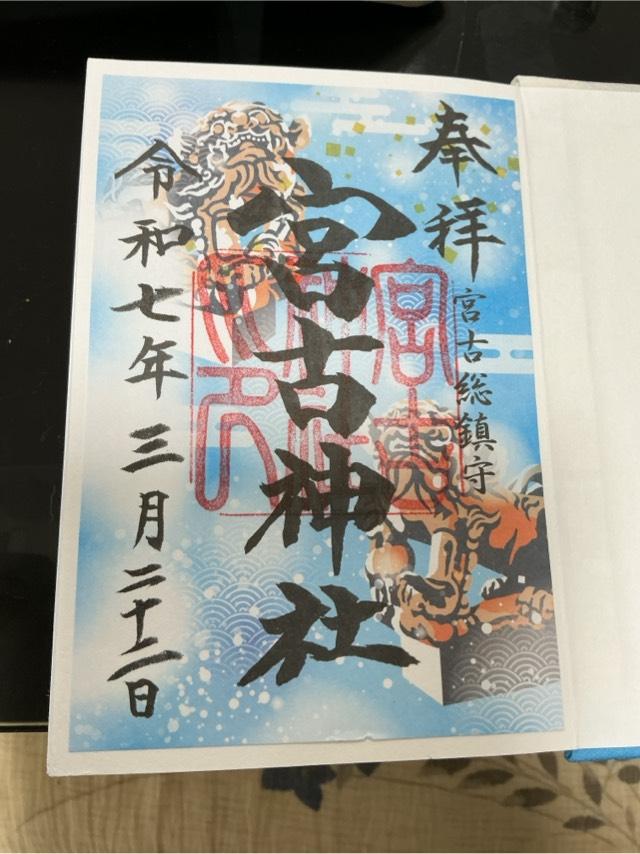 奉拝
宮古総鎮守
宮古神社
令和七年三月二十二日